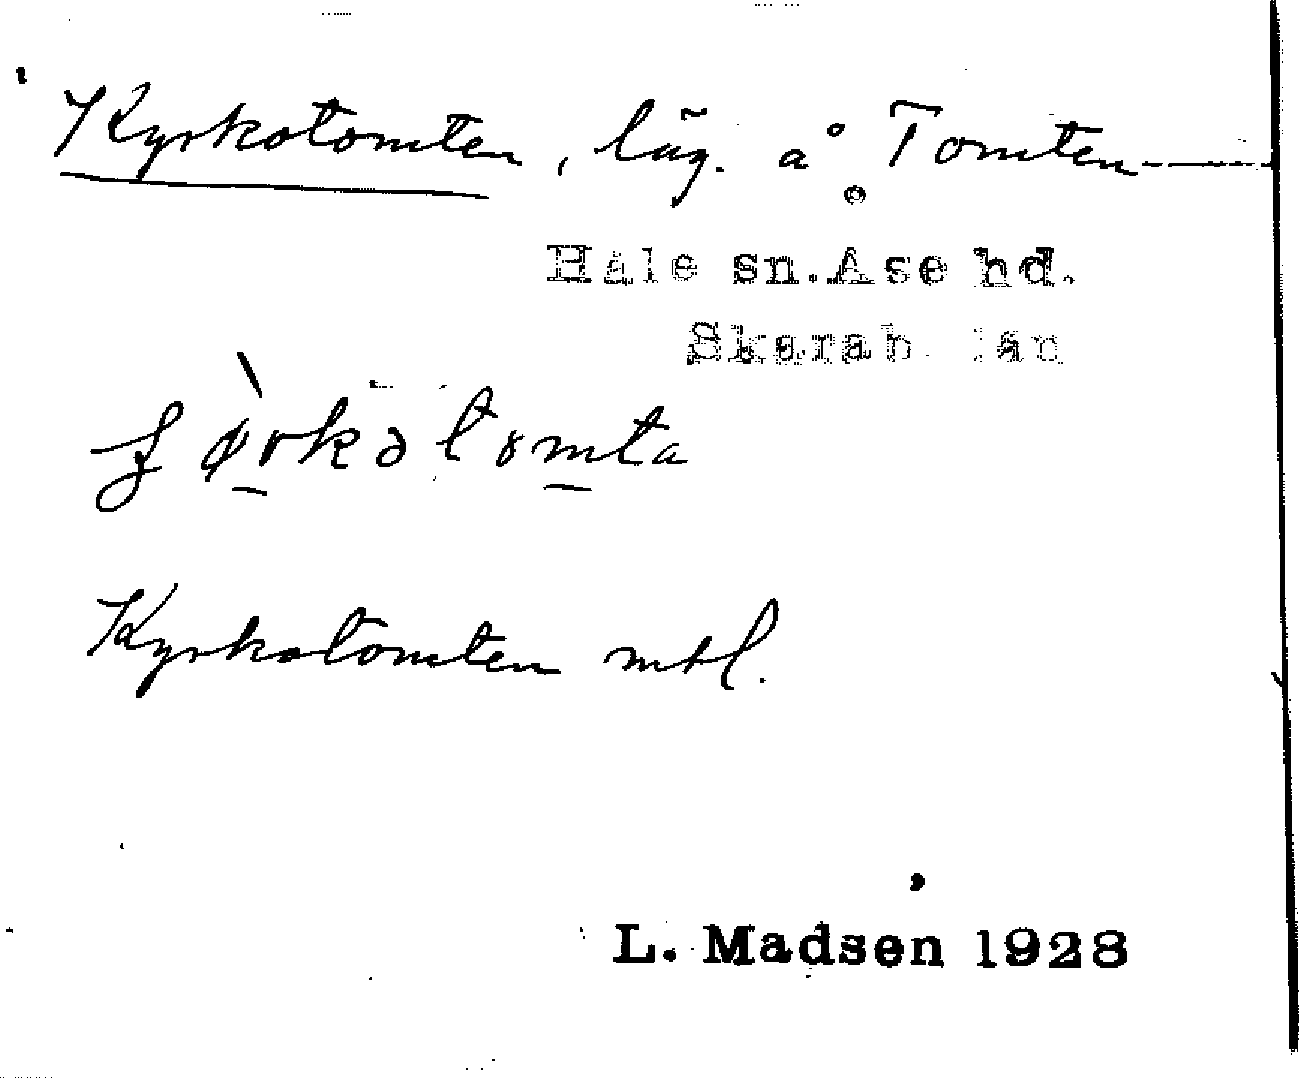 Kyrkotomten, läg. å Tomten
Håle sn. Åse hd.
Skarab. län
Kyrkotomten mtl.
L. Madsen 1928